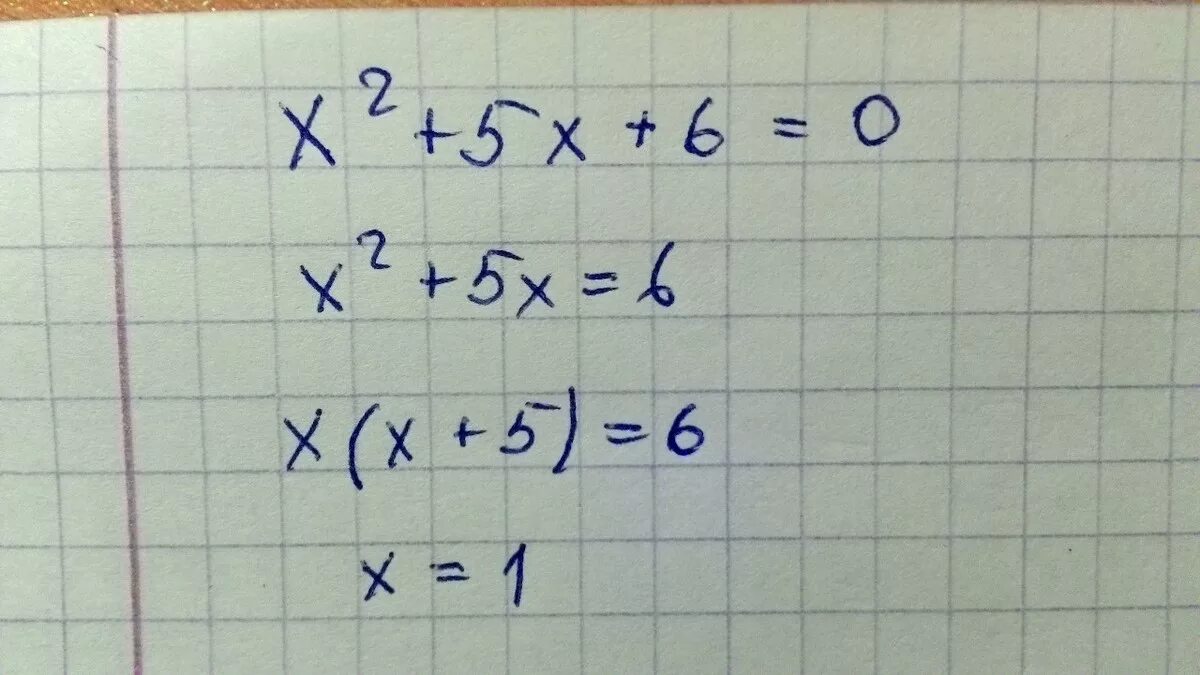 x² + 5x + 6 = 0
x² + 5x = 6
x(x + 5) = 6
x = 1